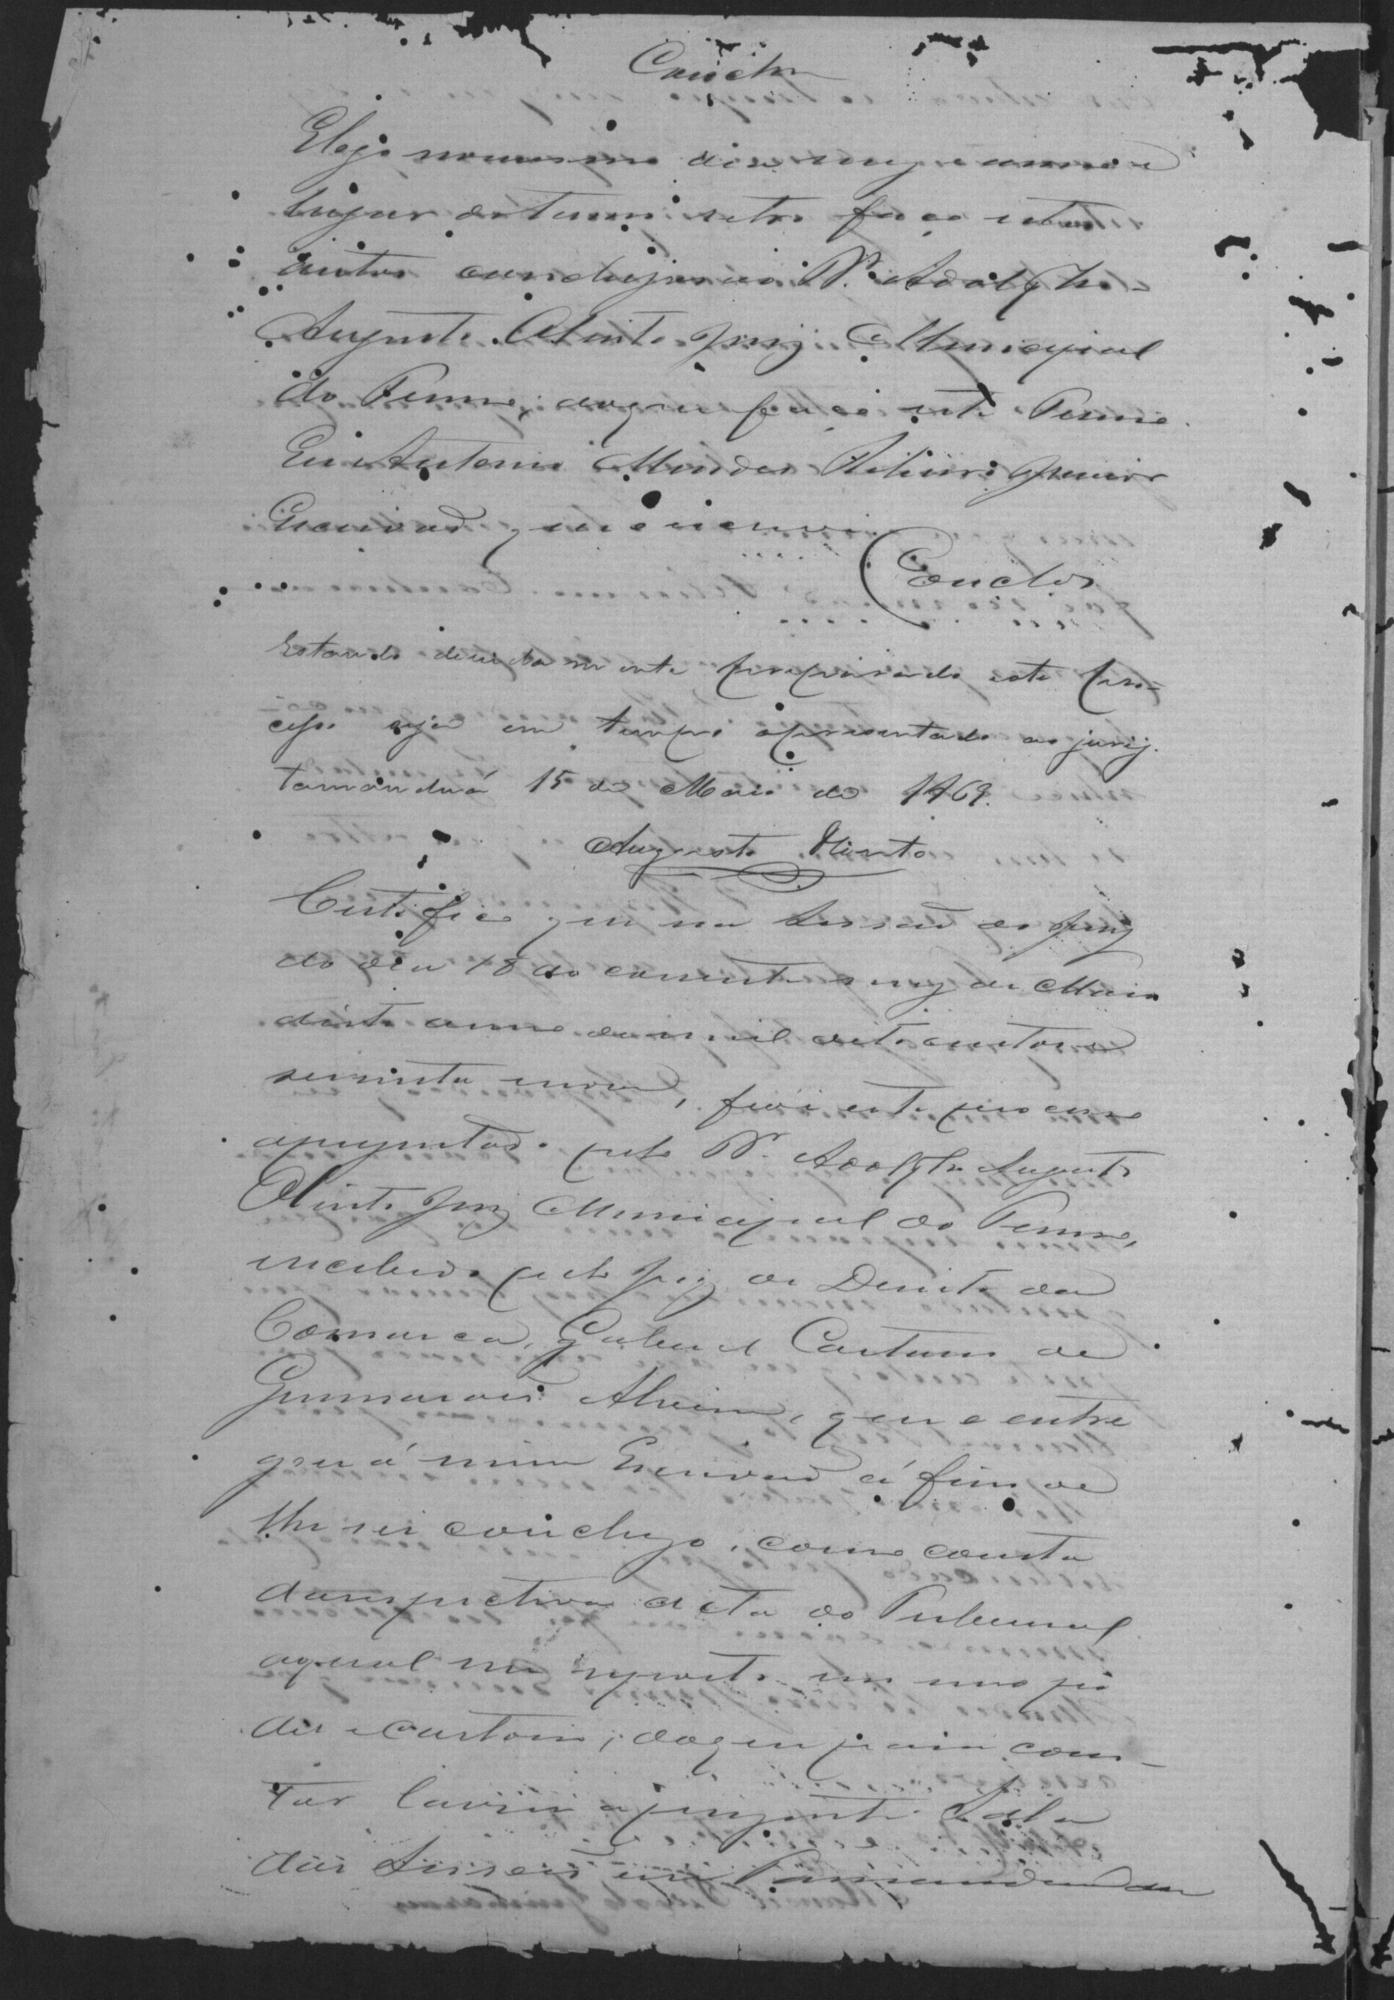 Concluzam
E logo no mesmo dia, mez e anno e
lugar do termo retro faço estes
autos concluzos ao Dr. Adolpho
Augusto Olinto Juiz Municipal
do Termo, do que faço este Termo
Eu Antonio Mendes Ribeiro Junior
Escrivaõ que o escrevi
Conclos
Estando devidamente preparado este pro-
cesso seja em tempo apresentado ao jury.
Tamanduá 15 de Maio de 1869.
Augusto Olinto
Certifico que na Sessaõ do Jury
do dia 18 do corrente mez de Maio
deste anno de mil oito centos e
sessenta e nove, foi este processo
aprezentado pelo Dr. Adolpho Augusto
Olinto Juiz Municipal do Termo,
recebido pelo Juiz de Direito da
Comarca, Gabriel Caetano de
Guimaraẽs Alvim, que o entre
gou á mim Escrivaõ á fim de
lhe ser concluzo, como consta
da respectiva acta do Tribunal
a qual me reporto em meo po
der e cartorio; do que para cons-
tar lavrei a prezente. Sala
das Sessoẽs em Tamanduá